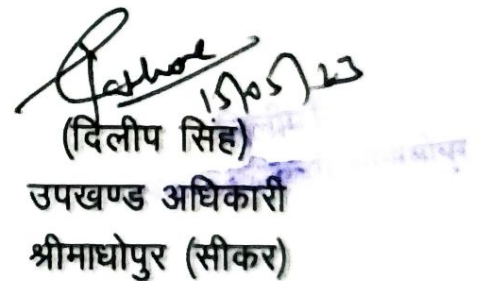 15/05/23
(दिलीप सिंह)
उपखण्ड अधिकारी
श्रीमाधोपुर (सीकर)